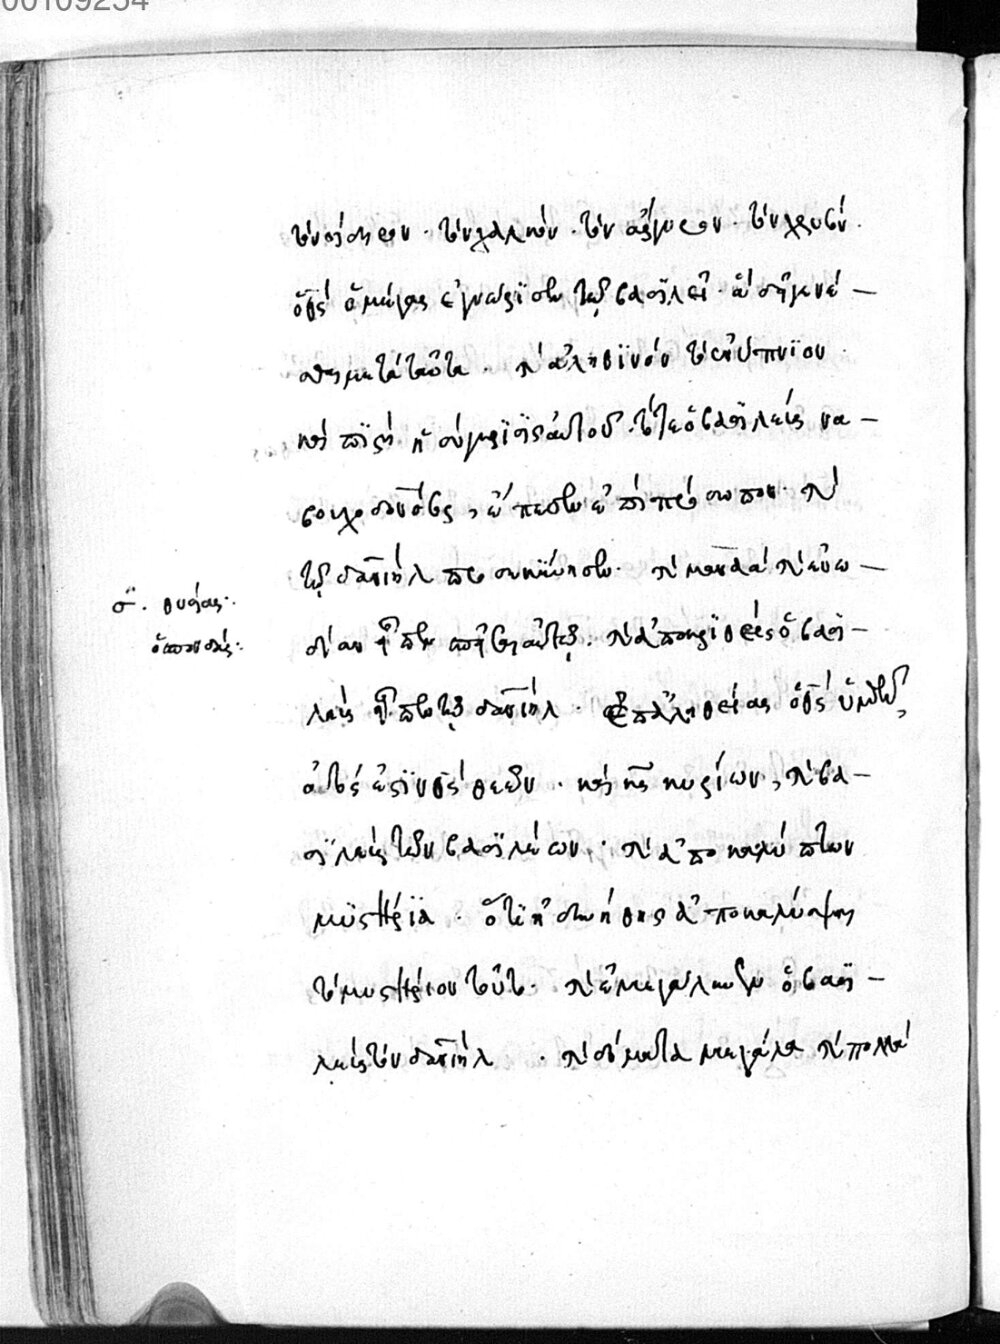 00109254
τὸν σίδηρον · τὸν χαλκόν · τὸν ἄργυρον · τὸν χρυσόν ·
ὁ θς ὁ μέγας ἐγνώρϊσεν τῷ βασϊλεῖ · ἃ δεῖ γενέ—
σθαι μετὰ ταῦτα · καὶ ἀληθϊνὸν τὸ ἐνύπνϊον
καὶ πϊστὴ ἡ σύγκρϊσϊς αὐτοῦ · τότε ὁ βασϊλεὺς να—
βουχοδονόσορ, ἔπεσεν ἐπὶ πρόσωπον · καὶ
τῷ δανιὴλ προσεκύνησεν · καὶ μαναὰ καὶ εὐω—
σ. θυσίας·
δίαν εἶπεν σπεῖσαι αὐτῷ · καὶ ἀποκρϊθεὶς ὁ βασϊ—
ὁ σπονδάς·
λεὺς εἶπεν τῷ δανιὴλ · ἐπ' ἀληθείας ὁ θς ὑμῶν,
αὐτός ἐστϊν θς θεῶν · καὶ κς κυρίων, καὶ βα—
σϊλεὺς τῶν βασϊλέων · καὶ ἀποκαλύπτων
μϋστήρϊα · ὅτϊ ἠδυνήθης ἀποκαλύψαι
τὸ μυστήριον τοῦτο · καὶ ἐμεγάλυνεν ὁ βασϊ—
λεὺς τὸν δανιὴλ · καὶ δόματα μεγάλα καὶ πολλὰ